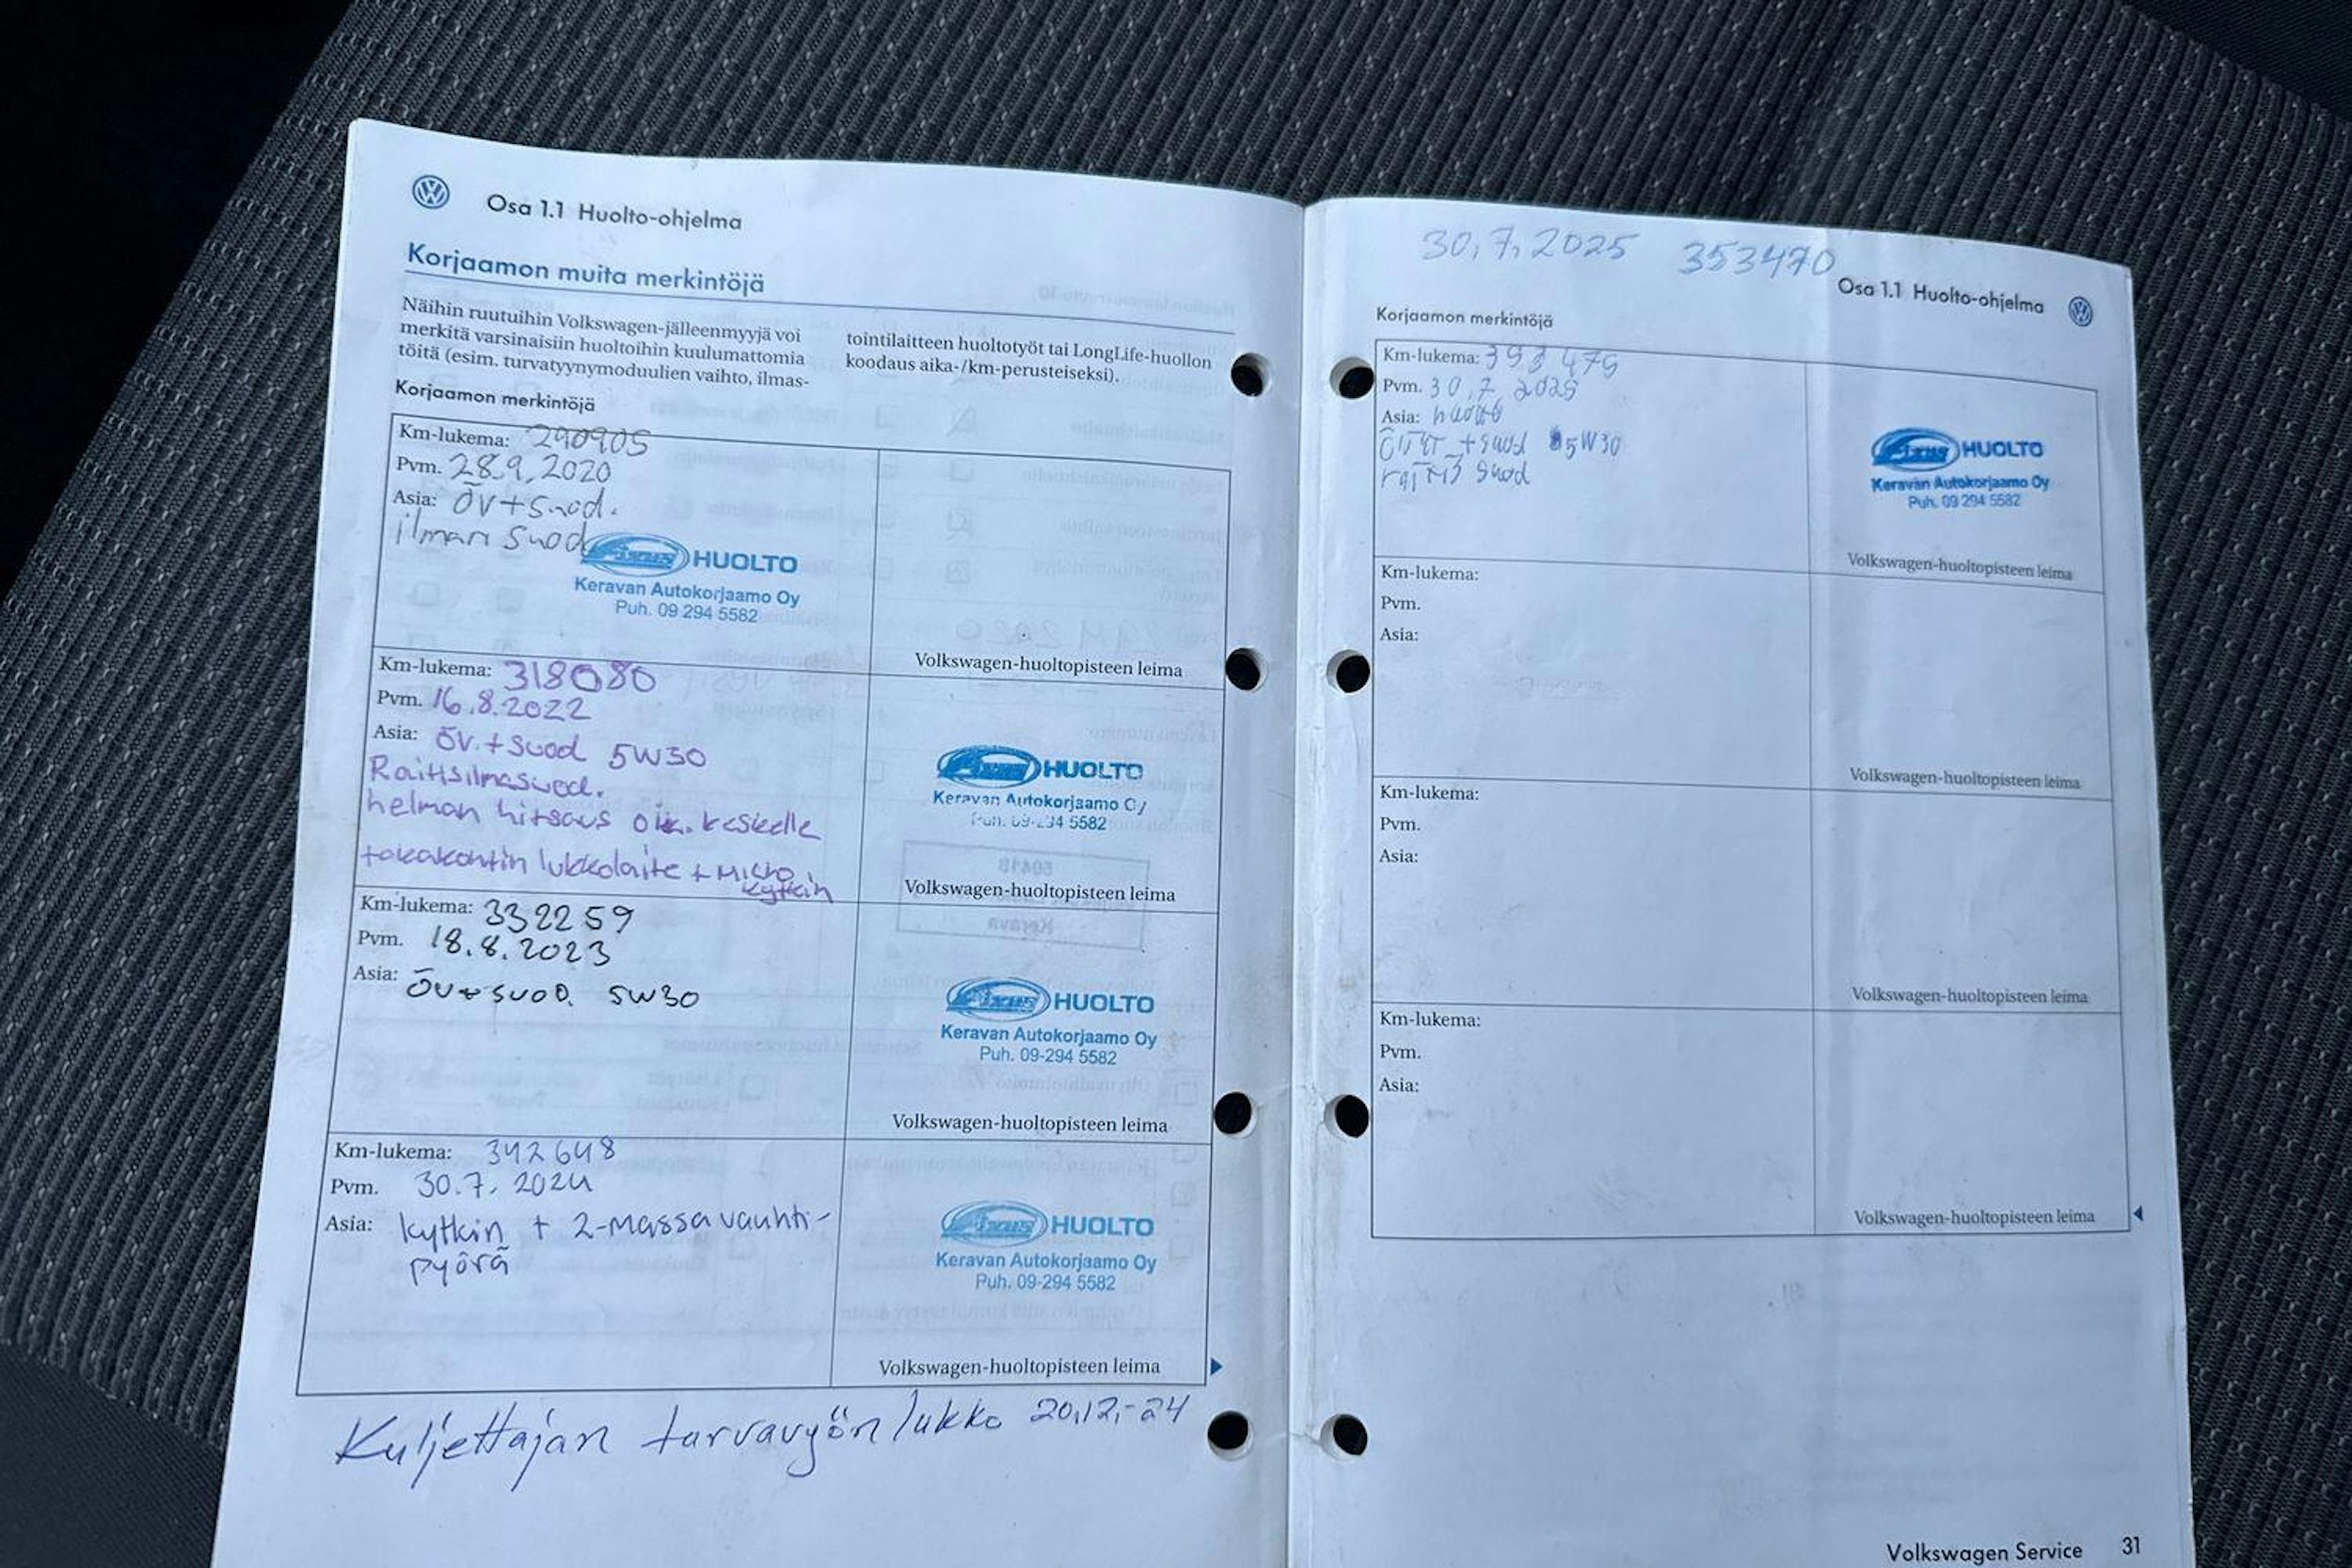 Osa 1.1 Huolto-ohjelma
Korjaamon muita merkintöjä
Näihin ruutuihin Volkswagen-jälleenmyyjä voi
merkitä varsinaisiin huoltoihin kuulumattomia
töitä (esim. turvatyynymoduulien vaihto, ilmas-
tointilaitteen huoltotyöt tai LongLife-huollon
koodaus aika-/km-perusteiseksi).
Korjaamon merkintöjä
Km-lukema: 290905
Pvm. 28.9.2020
Asia: öv+suod.
ilman suod
Fixus HUOLTO
Keravan Autokorjaamo Oy
Puh. 09 294 5582
Volkswagen-huoltopisteen leima
Km-lukema: 318080
Pvm. 16.8.2022
Asia: öv.+suod 5W30
Raitisilmasuod.
helman hitsaus oik. keskelle
takakontin lukkolaite + Micro
kytkin
Fixus HUOLTO
Keravan Autokorjaamo Oy
Puh. 09-294 5582
Volkswagen-huoltopisteen leima
Km-lukema: 332259
Pvm. 18.8.2023
Asia: öv+suod. 5W30
Fixus HUOLTO
Keravan Autokorjaamo Oy
Puh. 09-294 5582
Volkswagen-huoltopisteen leima
Km-lukema: 342648
Pvm. 30.7.2024
Asia: kytkin + 2-massavauhti-
pyörä
Fixus HUOLTO
Keravan Autokorjaamo Oy
Puh. 09-294 5582
Volkswagen-huoltopisteen leima
Kuljettajan turvavyön lukko 20.12.-24
30.7.2025 353470
Osa 1.1 Huolto-ohjelma
Korjaamon merkintöjä
Km-lukema:
Pvm. 30.7.2025
Asia: huolto
+suod 5W30
suod
Fixus HUOLTO
Keravan Autokorjaamo Oy
Puh. 09 294 5582
Volkswagen-huoltopisteen leima
Km-lukema:
Pvm.
Asia:
Volkswagen-huoltopisteen leima
Km-lukema:
Pvm.
Asia:
Volkswagen-huoltopisteen leima
Km-lukema:
Pvm.
Asia:
Volkswagen-huoltopisteen leima
Volkswagen Service 31